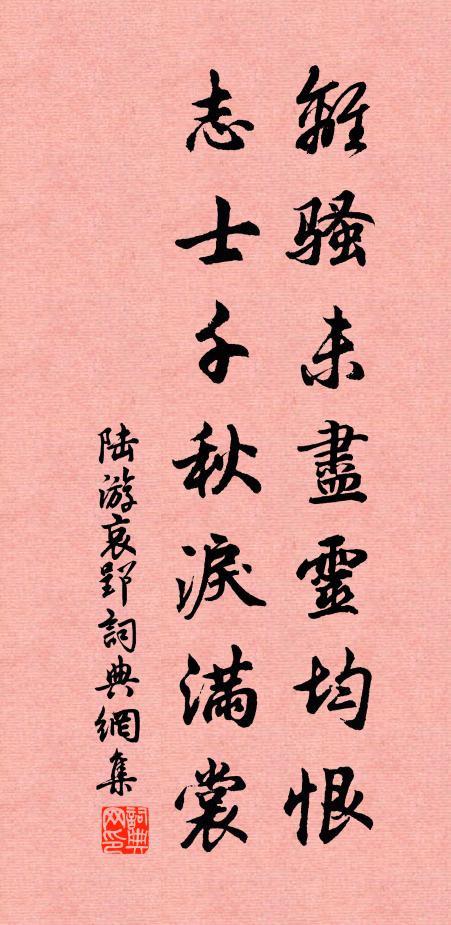 離騷未盡靈均恨
志士千秋淚滿裳
陸游哀郢詞典網集
詞典网印